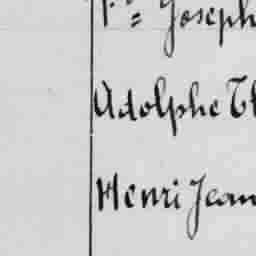 Joseph
Adolphe Th
Henri Jean